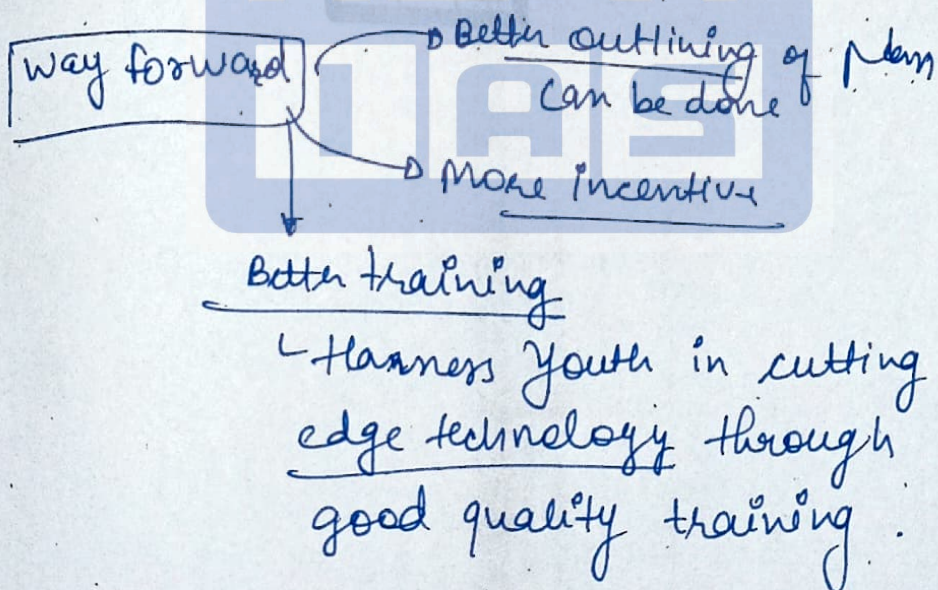 Way forward
Better outlining of
can be done
More incentive
IAS
Better training
Harness Youth in cutting
edge technology through
good quality training.